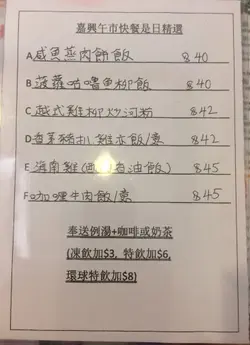 嘉興午市快餐是日精選
A 咸魚蒸肉餅飯 $40
B. 菠蘿咕嚕魚柳飯 $40
C. 越式雞柳炒河粉 $42
D 香茅豬扒雞亦飯/意 $42
E 海南雞(油飯) $45
F 咖喱牛肉飯/意 $45
奉送例湯+咖啡或奶茶
(凍飲加$3, 特飲加$6,
環球特飲加$8)